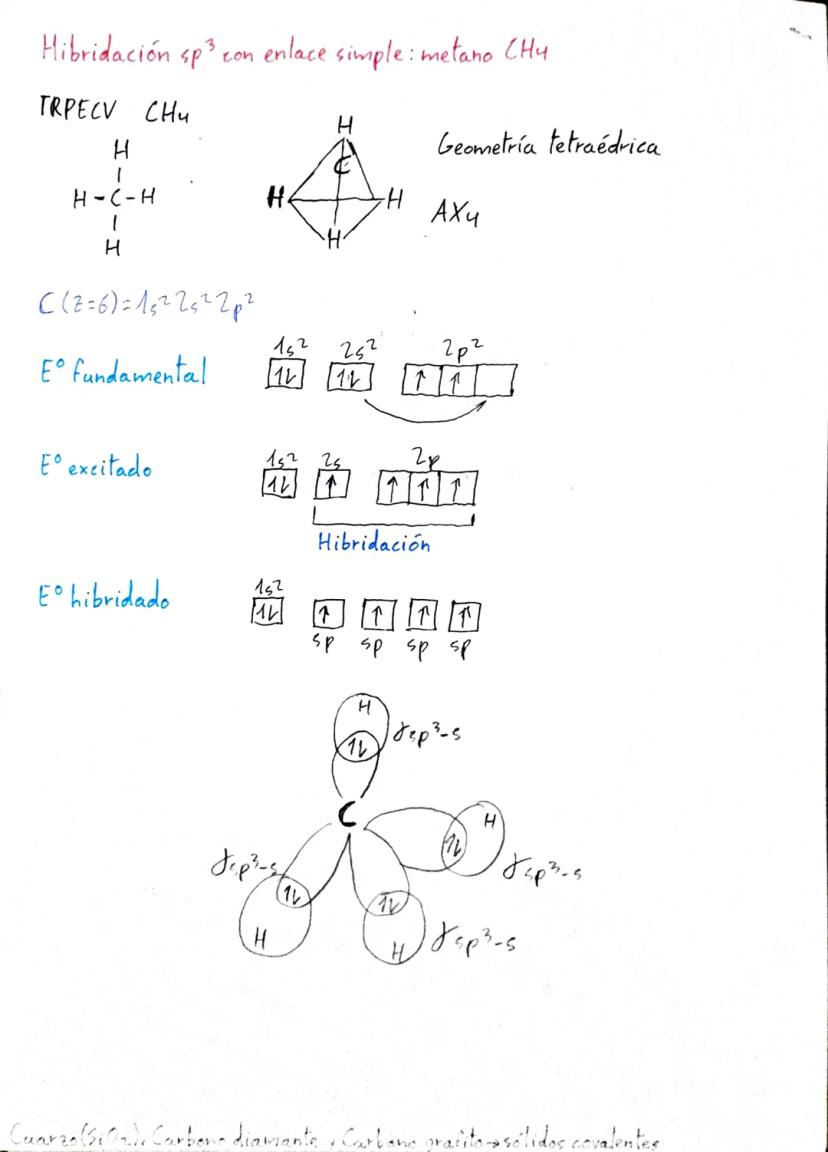 Hibridación sp³ con enlace simple: metano CH₄
TRPECV CH₄
H
H-C-H
H
H
C
H H
H
Geometría tetraédrica
AX₄
C (Z=6)=1s² 2s² 2p²
1s² 2s² 2p²
Eº fundamental ↑↓ ↑↓ ↑ ↑
1s² 2s 2p
Eº excitado ↑↓ ↑ ↑ ↑ ↑
Hibridación
1s²
Eº hibridado ↑↓ ↑ ↑ ↑ ↑
sp sp sp sp
H
↑↓ σsp³-s
C
H
↑↓ σsp³-s
σsp³-s
↑↓
H
↑↓
H σsp³-s
Cuarzo(SiO₂), Carbono diamante, Carbono grafito→sólidos covalentes